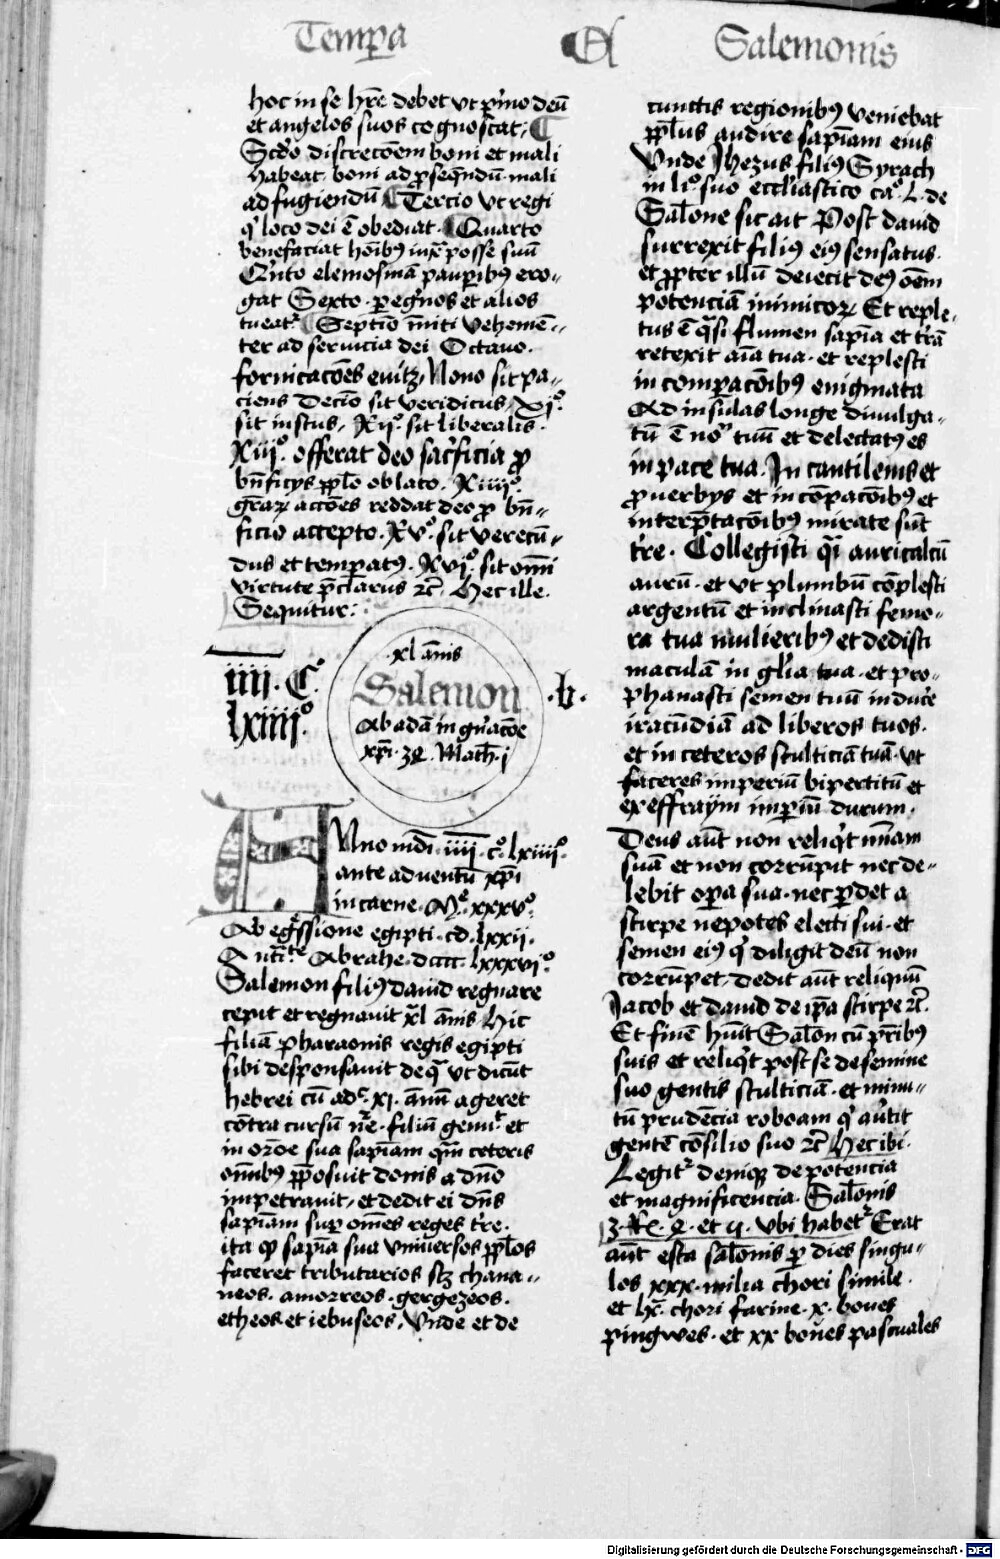 Tempa A Salemonis
hoc in se hr̄e debet vt pͥmo deū
et angelos suos cognoscat, ¶
Scd̄o discrecōem boni et mali
habeat. boni ad ꝓseqn̄dū. mali
ad fugiendū ¶ Tercio vt regi
qͥ loco dei ē obediat. ¶ Quarto
benefaciat hoīb9 iuxͣ posse suū
Qͥnto elemosinā pauꝑib9 ero-
gat Sexto. ꝑegͥnos et alios
tueatͬ. ¶ Septīo īniti vehemē-
ter ad seruicia dei Octauo.
fornicacōes euitꝫ, Nono sit pa-
ciens Decīo sit veridicus, xjͦ.
sit iustus, Xijͦ. sit liberalis.
Xiijͦ. offerat deo sacͥficia ꝓ
bn̄ficijs ppl̄o oblato. Xiiijͦ.
gr̄aꝝ accōes reddat deo ꝓ bn̄-
ficio accepto. Xvͦ. sit verecū-
dus et temꝑat9. Xvjͦ. sit om̄i
virtute p̄clarus ⁊c̄. Hec ille.
Sequitur:
xl ānis
iiii. Cͦ. Salemon .b.
lxiiiiͦ. Ab adā in gn̄acōe
xp̄i. 32. Math. j
Anno mdī. iiii. cͦ. lxiiiiͦ.
ante aduentū xp̄i
in carne. Mͦ. xxxvͦ.
Ab egͥssione egipti. cd. lxxii.
Abrahe. dcccc. lxxxviͦ.
Salemon fili9 dauid regnare
cepit et regnauit xl ānis. Hic
filiā pharaonis regis egipti
sibi desponsauit de qͣ vt dicūt
hebrei cū adͨ. xi. annū ageret
cōtra cursū nr̄e. filiū genuͭ. et
in ord̄e sua sapiām qͣm ceteris
omībus p̄posuit donis a dn̄o
impetrauit, et dedit ei dn̄s
sapiām suꝑ om̄es reges tr̄e.
ita qͩ sapīa sua vniuersos ppl̄os
faceret tributarios sꝫ chana-
neos. amorreos. gergezeos.
etheos et iebuseos, Vn̄de et de
cunctis regionib9 veniebat
ppl̄us audire sapīam eius
Vnde Jhezus fili9 Syrach
in liͦ. suo eccl̄iastico caͦ. L. de
Sal̄one sic ait Post dauid
surrexit fili9 ei9 sensatus.
et ꝓpter illū deiecit de9 oēm
potenciā inimicoꝝ Et reple-
tus ē qͣsi flumen sapīa et tr̄ā
retexit aīa tua. et replesti
in comꝑacōib9 enigmata
Ad insulas longe diuulga-
tū ē noͫ tuū et delectat9 es
in pace tua. In cantilenis et
ꝓuerbijs et in cōꝑacōib9 et
interp̄tacōib9 mirate sūt
tr̄e. Collegisti qͣi auricalcū
aurū. et vt plumbū cōplesti
argentū et inclinasti femo-
ra tua mulierib9 et dedisti
maculā in gl̄ia tua. et pro-
phanasti semen tuū inducͤe
iracūdiā ad liberos tuos.
et in ceteros stulticiā tuā. vt
faceres imperiū bipertitū et
ex effraym imꝑiū durum.
Deus aūt non relinqͭ mīam
suā et non corrūpit nec de-
lebit oꝑa sua. nec ꝑdet a
stirpe nepotes electi sui. et
semen ei9 qͥ diligit deū non
corrūpet, dedit aūt reliquū
Jacob et dauid de ip̄a stirpe ⁊c̄.
Et finē huīt Sal̄on cū pr̄ib9
suis et reliqͭ post se de semine
suo gentis stulticiā. et minu-
tū prudēcia roboam qͥ au̇tit
gentē cōsilio suo ⁊c̄ Hec ibi.
Legitͬ deniqꝫ de potencia
et magnificencia. Sal̄onis
3. Re. 2. et 4. vbi habetͬ Erat
aūt esca sal̄onis ꝑ dies singu-
los xxx. milia chori simile.
et lx. chori farine. x. boues
pingwes. et xx boues pascuales
Digitalisierung gefördert durch die Deutsche Forschungsgemeinschaft - DFG